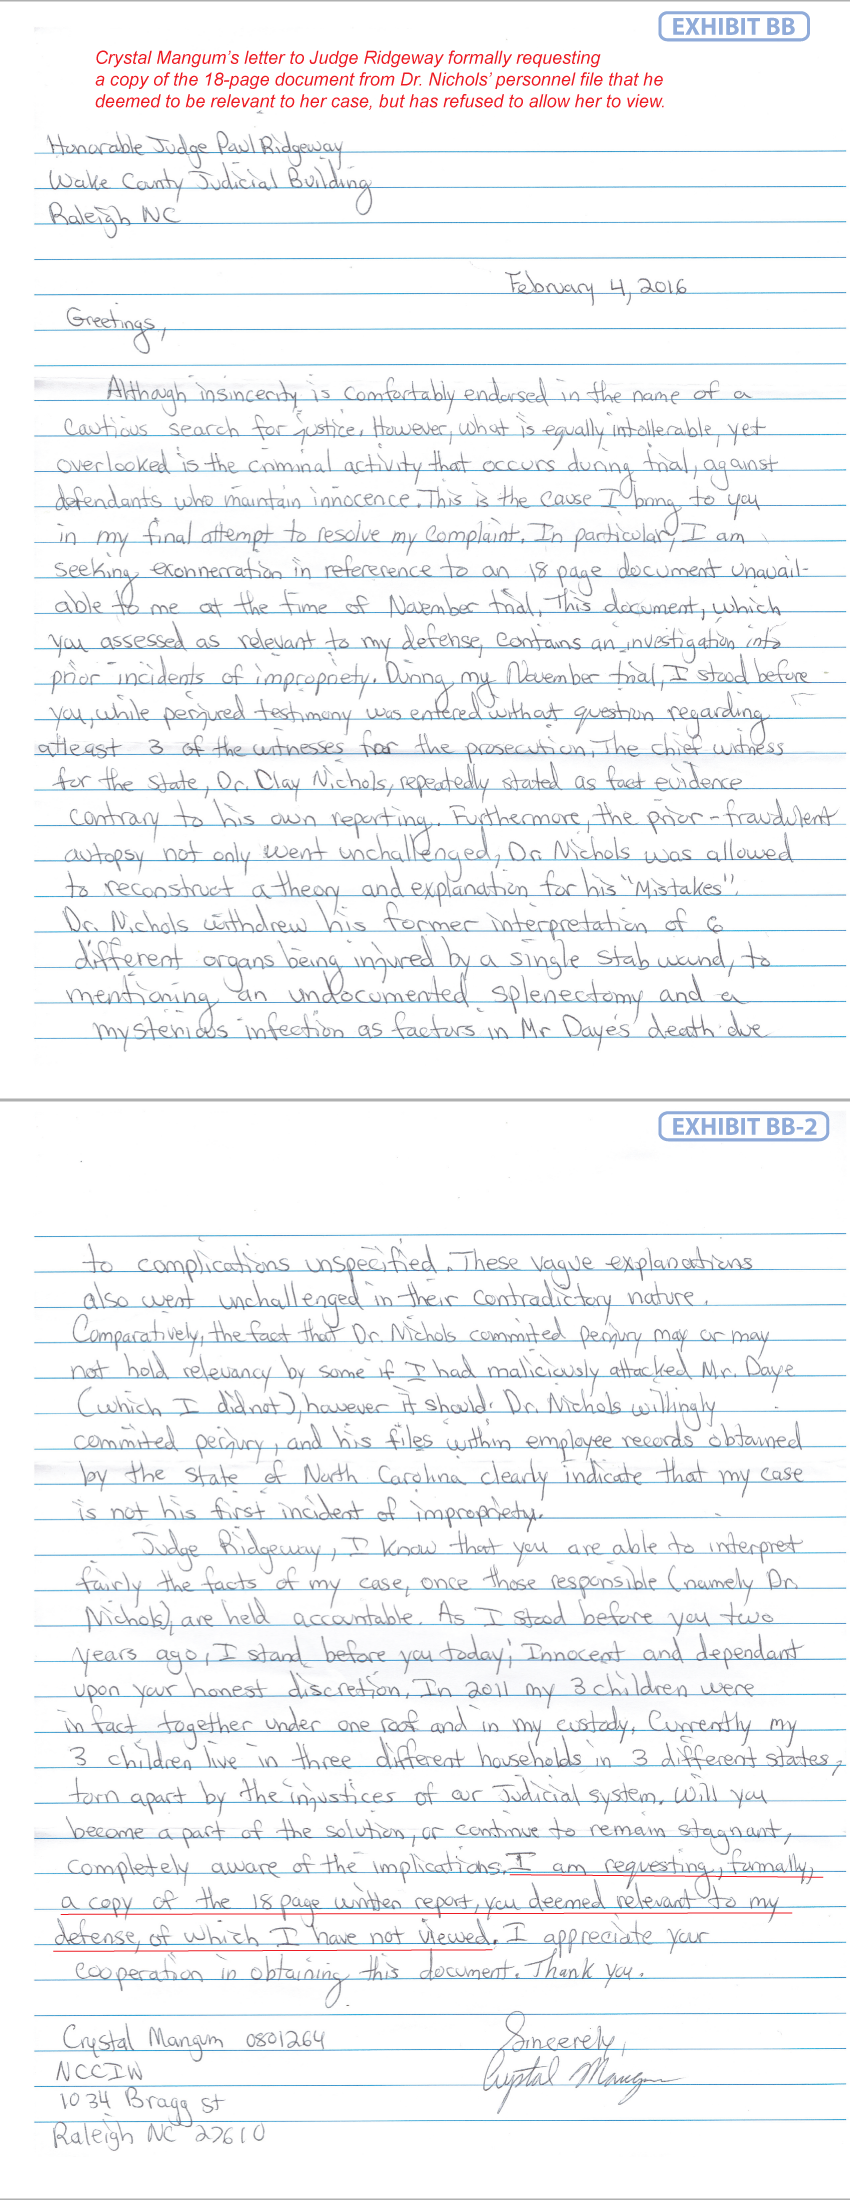 EXHIBIT BB
Crystal Mangum's letter to Judge Ridgeway formally requesting
a copy of the 18-page document from Dr. Nichols' personnel file that he
deemed to be relevant to her case, but has refused to allow her to view.
Honorable Judge Paul Ridgeway
Wake County Judicial Building
Raleigh NC
February 4, 2016
Greetings,
Although insincerity is comfortably endorsed in the name of a
cautious search for justice. However, what is equally intollerable, yet
overlooked is the criminal activity that occurs during trial, against
defendants who maintain innocence. This is the cause I bring to you
in my final attempt to resolve my complaint. In particular, I am
seeking exonnerration in refererence to an 18 page document unavail-
able to me at the time of November trial. This document, which
you assessed as relevant to my defense, contains an investigation into
prior incidents of impropriety. During my November trial, I stood before
you, while perjured testimony was entered without question regarding
atleast 3 of the witnesses for the prosecution. The chief witness
for the state, Dr. Clay Nichols, repeatedly stated as fact evidence
contrary to his own reporting. Furthermore, the prior-fraudulent
autopsy not only went unchallenged, Dr. Nichols was allowed
to reconstruct a theory and explanation for his "Mistakes".
Dr. Nichols withdrew his former interpretation of 6
different organs being injured by a single stab wound, to
mentioning an undocumented splenectomy and a
mysterious infection as factors in Mr Daye's death due
EXHIBIT BB-2
to complications unspecified. These vague explanations
also went unchallenged in their contradictory nature.
Comparatively, the fact that Dr. Nichols commited perjury may or may
not hold relevancy by some if I had maliciously attacked Mr. Daye
(which I did not), however it should. Dr. Nichols willingly
commited perjury, and his files within employee records obtained
by the State of North Carolina clearly indicate that my case
is not his first incident of impropriety.
Judge Ridgeway, I know that you are able to interpret
fairly the facts of my case, once those responsible (namely Dr.
Nichols), are held accountable. As I stood before you two
years ago, I stand before you today; Innocent and dependant
upon your honest discretion. In 2011 my 3 children were
in fact together under one roof and in my custody. Currently my
3 children live in three different households in 3 different states,
torn apart by the injustices of our Judicial system. Will you
become a part of the solution, or continue to remain stagnant,
completely aware of the implications. I am requesting, formally,
a copy of the 18 page written report, you deemed relevant to my
defense, of which I have not viewed. I appreciate your
cooperation in obtaining this document. Thank you.
Sincerely,
Crystal Mangum 0801264
Crystal Mangum
NCCIW
1034 Bragg St
Raleigh NC 27610